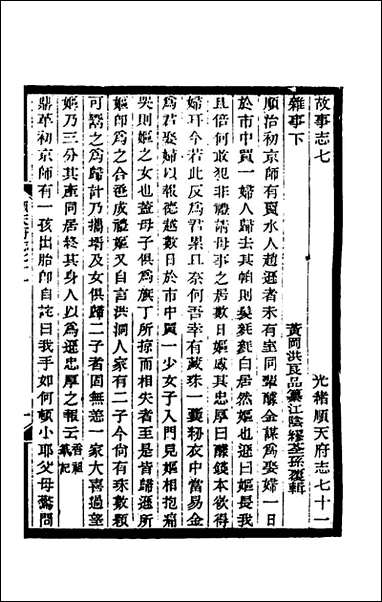 故事志七 光緒順天府志七十一
雜事下
黃岡洪良品纂江陰繆荃孫覆輯
順治初京師有賣水人趙遜者未有室同輩醵金為娶婦一日
於市中買一婦人歸去其帕則髮毿毿白居然嫗也遜曰嫗長我
且倍何敢犯非禮請母事之居數日嫗感其忠厚曰醵錢本欲得
婦耳今若此反為君累且奈何吾幸有藏珠一囊紉衣中當易金
為君娶婦以報德越數日於市中買一少女子入門見嫗相抱痛
哭則嫗之女也蓋母子俱為旗丁所掠而相失者至是皆歸遜所
嫗即為之合卺成禮嫗又自言洪洞人家有二子今尚有珠數顆
可鬻之為歸計乃攜壻及女俱歸二子者固無恙一家大喜過望
嫗乃三分其產同居終其身人以為遜忠厚之報云 香祖筆記
鼎革初京師有一孩出胎即自詫曰我手如何頓小耶父母驚問